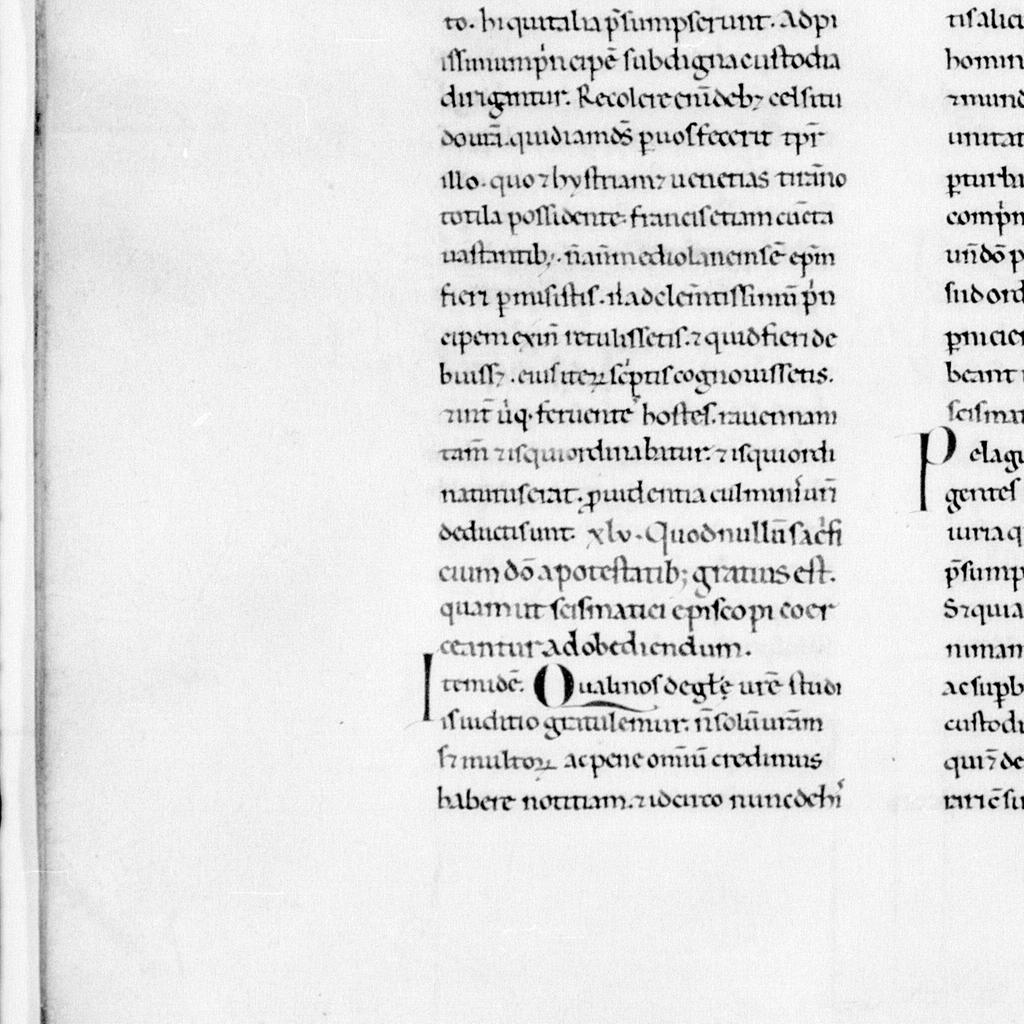 to. hi qui talia p̄sumpserunt. Ad pi
issimum pͥncipē sub digna custodia
dirigantur. Recolere eni̅ debꝫ celsitu
do ur̄a. quid iam d̄s ꝑ uos fecerit tp̄r
illo. quo ⁊ hystriam ⁊ uenetias tiran̄o
totila possidente. francis etiam cūcta
uastantibꝫ. n̄ an̄ mediolanensē ep̄m
fieri ꝑmisistis. n̄ ad clem̄tissimū pͥn
cipem exin̄ retulissetis. ⁊ quid fieri de
buissꝫ. eius iteꝝ scͥptis cognouissetis.
tam̄ ⁊ is qui ordinabitur. ⁊ is qui ordi
naturus erat. ꝓuidentia culminis ur̄i
deducti sunt. xlv. Quod nullū sacͥfi
cium dō a potestatibꝫ gratius est.
quam ut scismatici episcopi coer
ceantur ad obediendum.
Item idē. Quali nos de gl̄e ur̄e studi
is iuditio gratulemur. n̄ solū uram̄
sꝫ multoꝝ ac pene omiū credimus
habere notitiam. ⁊ idcirco nunc de hiͥ
tis alici
homin
⁊ mund
unitat
ꝑturbi
compͥm
un̄ dō p
sud ord
ꝑnicien
beant
scismat
Pelagi
gentes
iuria q
p̄sump
Sꝫ quia
niman
ac suꝑb
custodi
qui ⁊ de